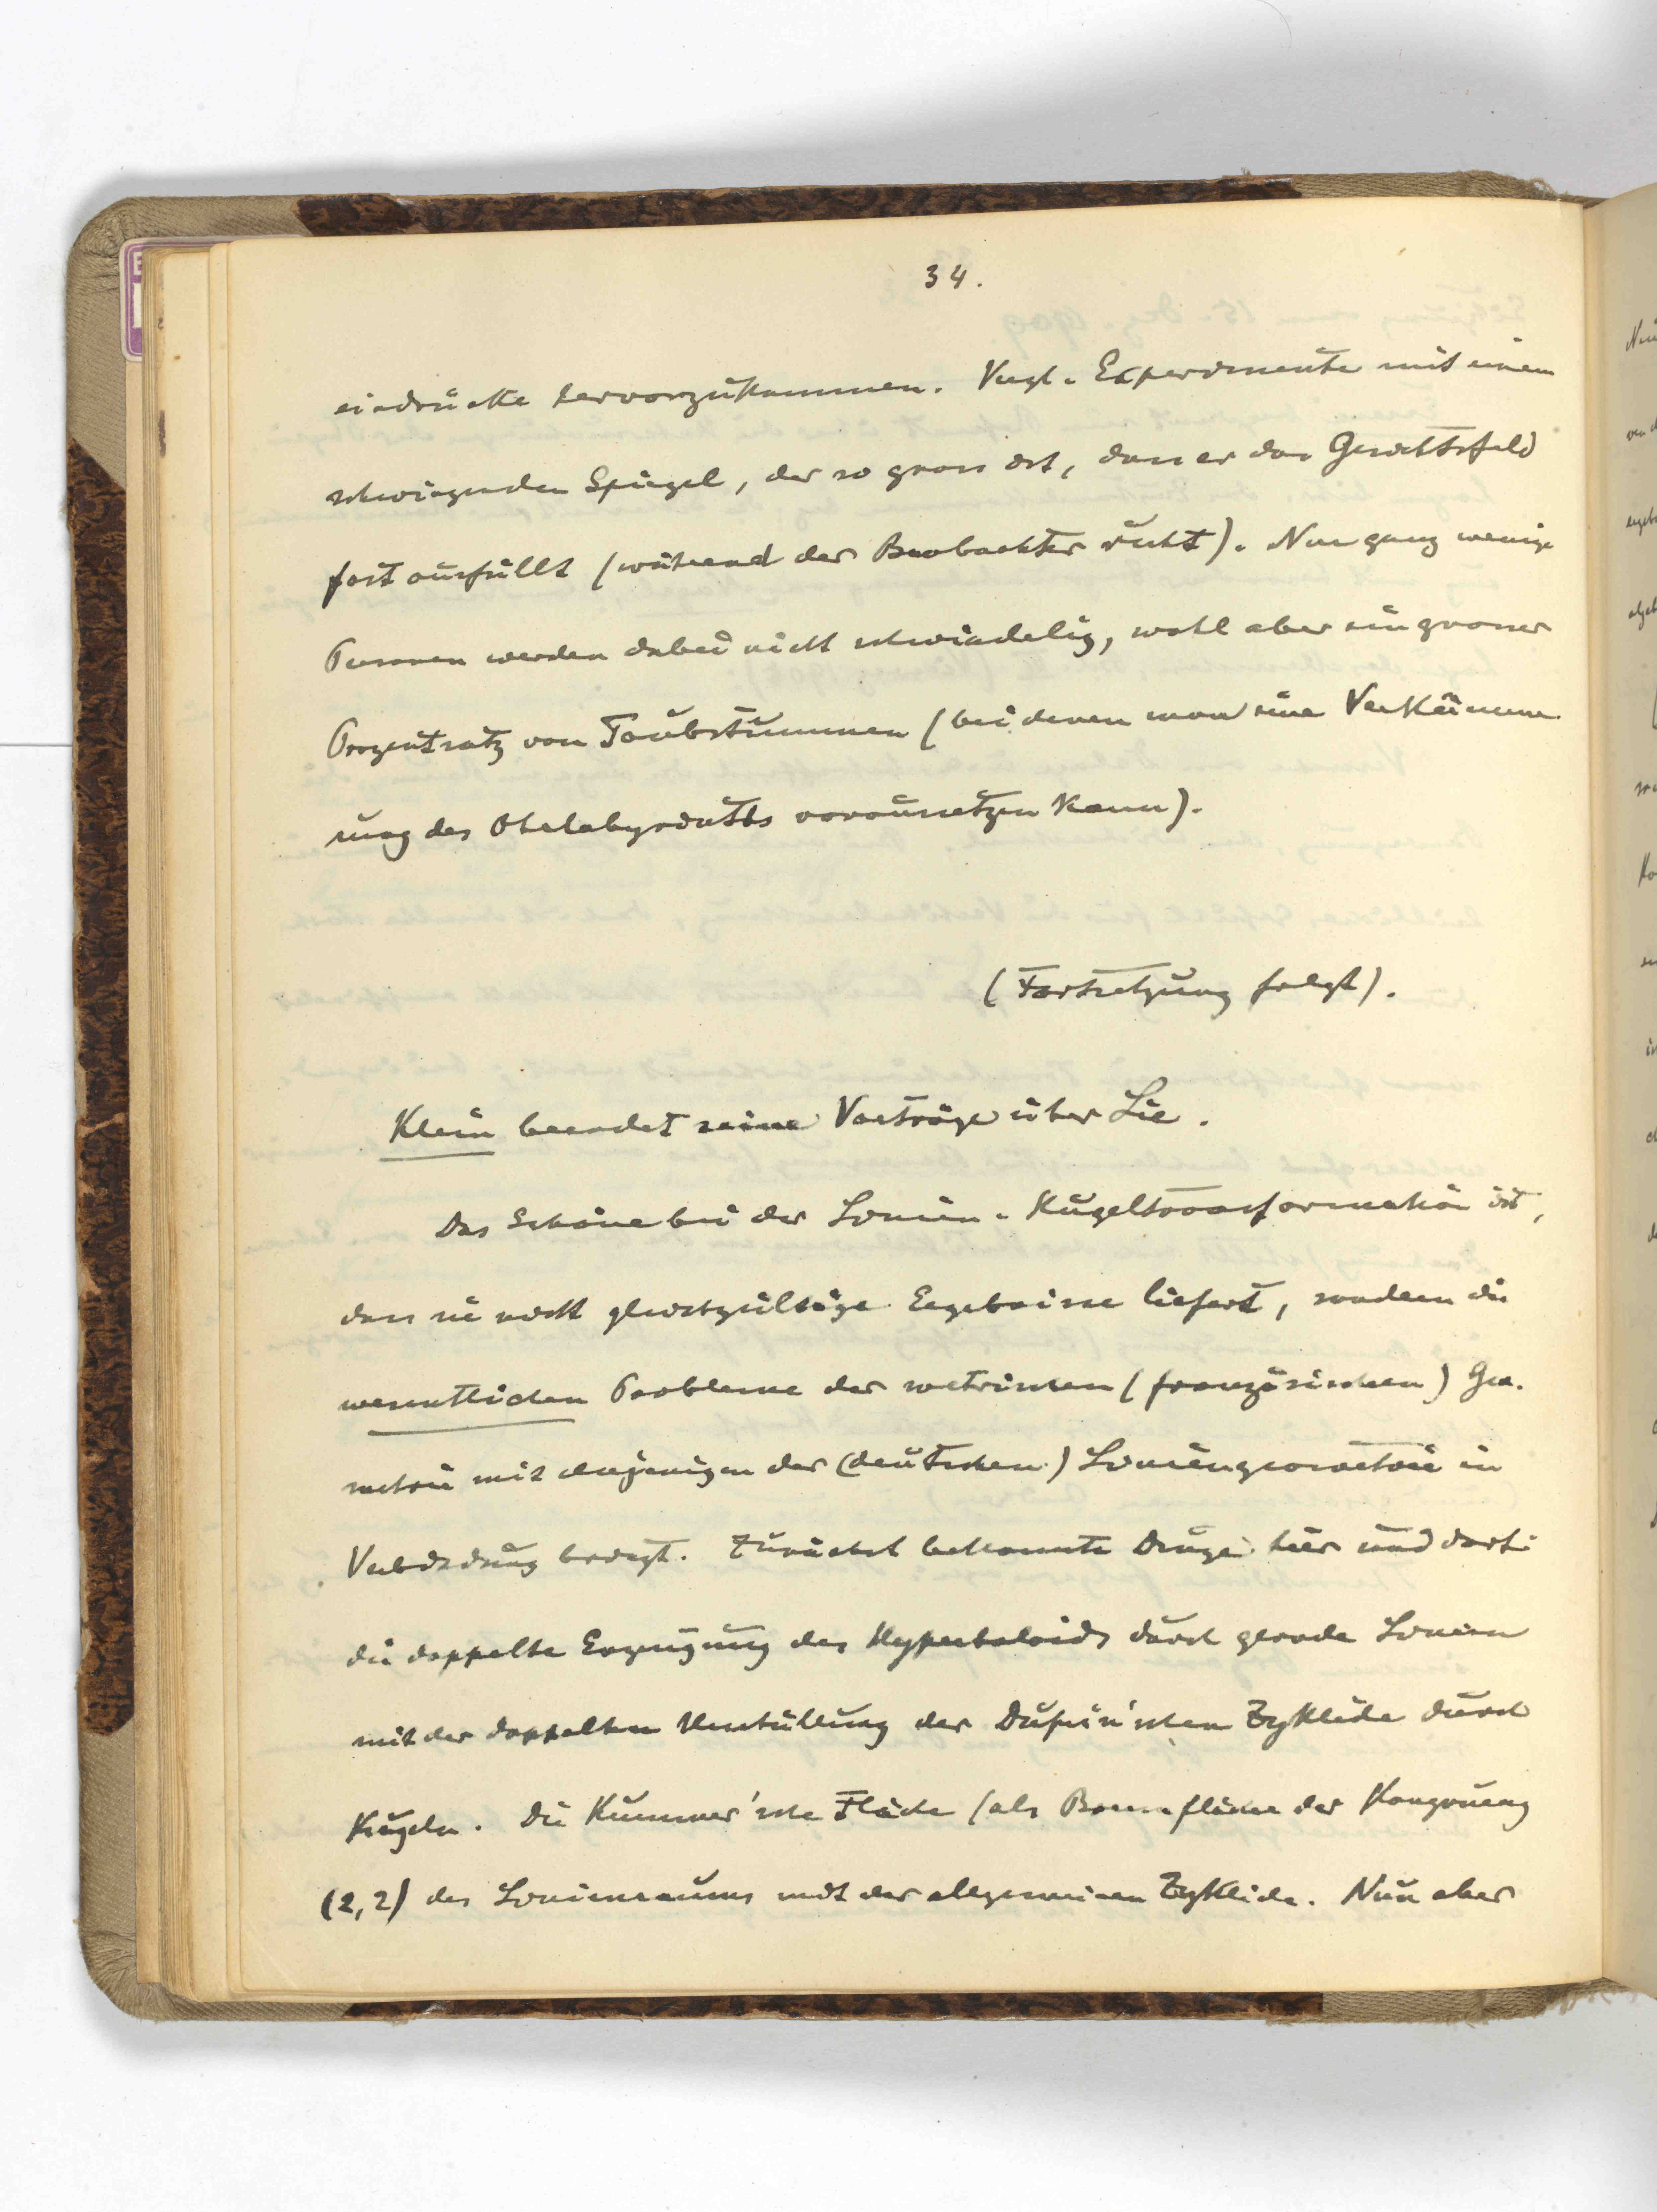 34.
eindrücke hervorzukommen. Vergl. Experimente mit einem
schwingenden Spiegel, der so gross ist, dass er das Gesichtsfeld
fast ausfüllt (während der Beobachter ruht). Nur ganz wenige
Personen werden dabei nicht schwindelig, wohl aber ein grosser
Prozentsatz von Taubstummen (bei denen man eine Verkümme
rung des Ohrlabyrinths voraussetzen kann).
(Fortsetzung folgt).
Klein beendet seine Vorträge über Lie.
Das Schöne bei der Linien-Kugeltransformation ist,
dass sie nicht gleichgültige Ergebnisse liefert, sondern die
wesentlichen Probleme der metrischen (französischen) Geo-
metrie mit denjenigen der (deutschen) Liniengeometrie in
Verbindung bringt. Zunächst bekannte Dinge hier und dort:
die doppelte Erzeugung des Hyperboloids durch gerade Linien
mit der doppelten Umhüllung der Dupin'schen Zyklide durch
Kugeln. Die Kummer'sche Fläche (als Brennfläche der Kongruenz
(2,2) des Linienraums mit der allgemeinen Zyklide. Nun aber